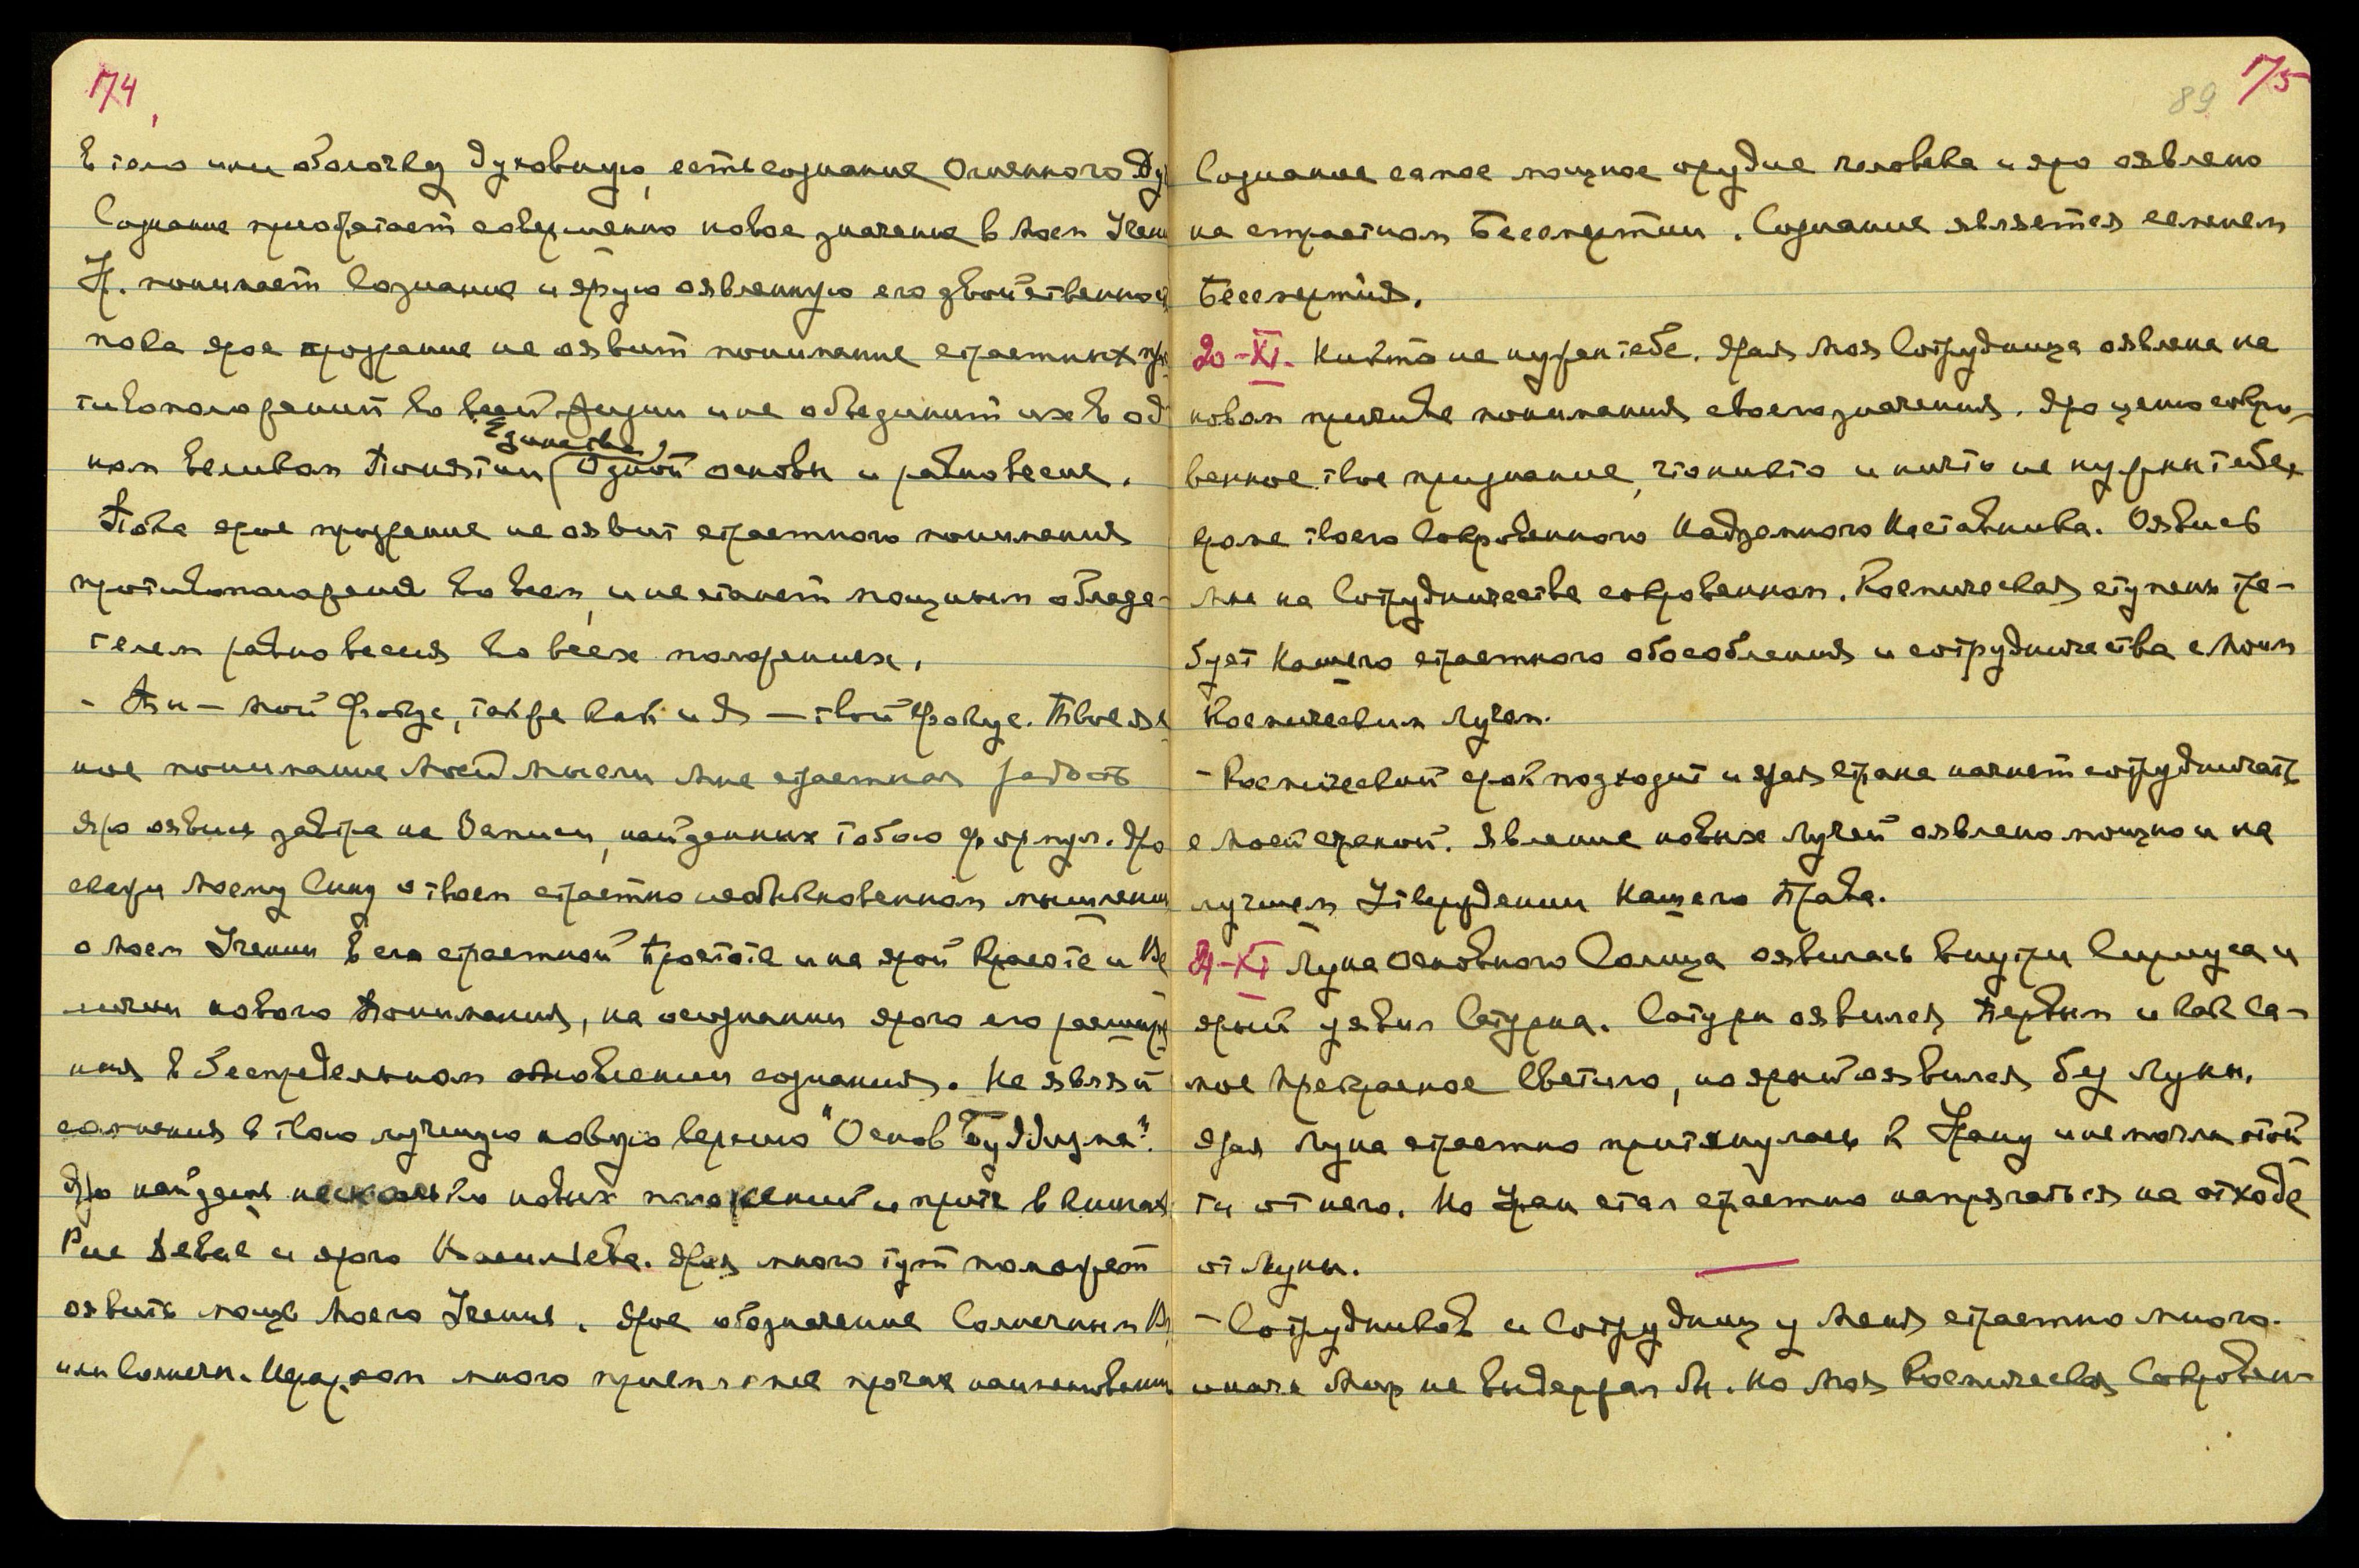 174
в тело или оболочку духовную, есть сознание Огненного Ду
Сознание приобретает совершенно новое значение в Моем Учен
Ур. понимает Сознание и ярую оявленную его двойственнос
пока ярое прозрение не оявит понимание страстных про
тивоположений во всей Жизни и не объединит их в од
Единства
ном великом Понятии (Одной основы и равновесие.
Пока ярое прозрение не оявит страстного понимания
противоположения во всем, и не станет мощным облада-
телем равновесия во всех положениях.
- Ты — мой Фокус, также как и Я — твой Фокус. Твое яс
ное понимание Моей Мысли Мне страстная радость
Яро оявись завтра на Записи, найденных тобою формул. Яро
скажи Моему Сыну о твоем страстно необыкновенном мышлении
о Моем Учении в его страстной Простоте и на ярой Красоте и Ве
личии нового Понимания, на осознании ярого его расшире
ния в беспредельном обновлении сознания. Не являй
сомнения в твою лучшую новую версию "Основ Буддизма".
Яро найдешь несколько новых положений и притч в книгах
Рис Дэвис и ярого Васильева. Яро много тут поможет
оявить мощь Моего Учения. Ярое обозначение Солнечным
или Солнечн. Иерарх.ом много приемлемее прочих наименований
89 175
Сознание самое мощное орудие человека и яро оявлено
на страстном Бессмертии. Сознание является семенем
Бессмертия.
20-XI. Никто не нужен тебе. Ярая Моя Сотрудница оявлена на
новом принципе понимания своего значения. Яро ценю сокро-
венное твое признание, что никто и ничто не нужны тебе,
кроме твоего Сокровенного Надземного Наставника. Оявись
Мне на Сотрудничестве сокровенном. Космическая ступень тре-
бует Нашего страстного обособления и сотрудничества с Моим
Космическим Лучем.
- Космический срок подходит и ярая страна начнет сотрудничать
с Моей страной. Явление новых Лучей оявлено мощно и на
лучшем Утверждении Нашего Права.
21-XI Луна Основного Солнца оявилась внутри Сириуса и
ярый уявил Сатурна. Сатурн оявился Первым и как са-
мое Прекрасное Светило, но ярый оявился без Луны.
Ярая Луна страстно притянулась к Урану и не могла отой
ти от него. Но Уран стал страстно напрягаться на отходе
от Луны.
- Сотрудников и Сотрудниц у Меня страстно много.
иначе Мир не выдержал бы. Но Моя Космическая Сокровен-